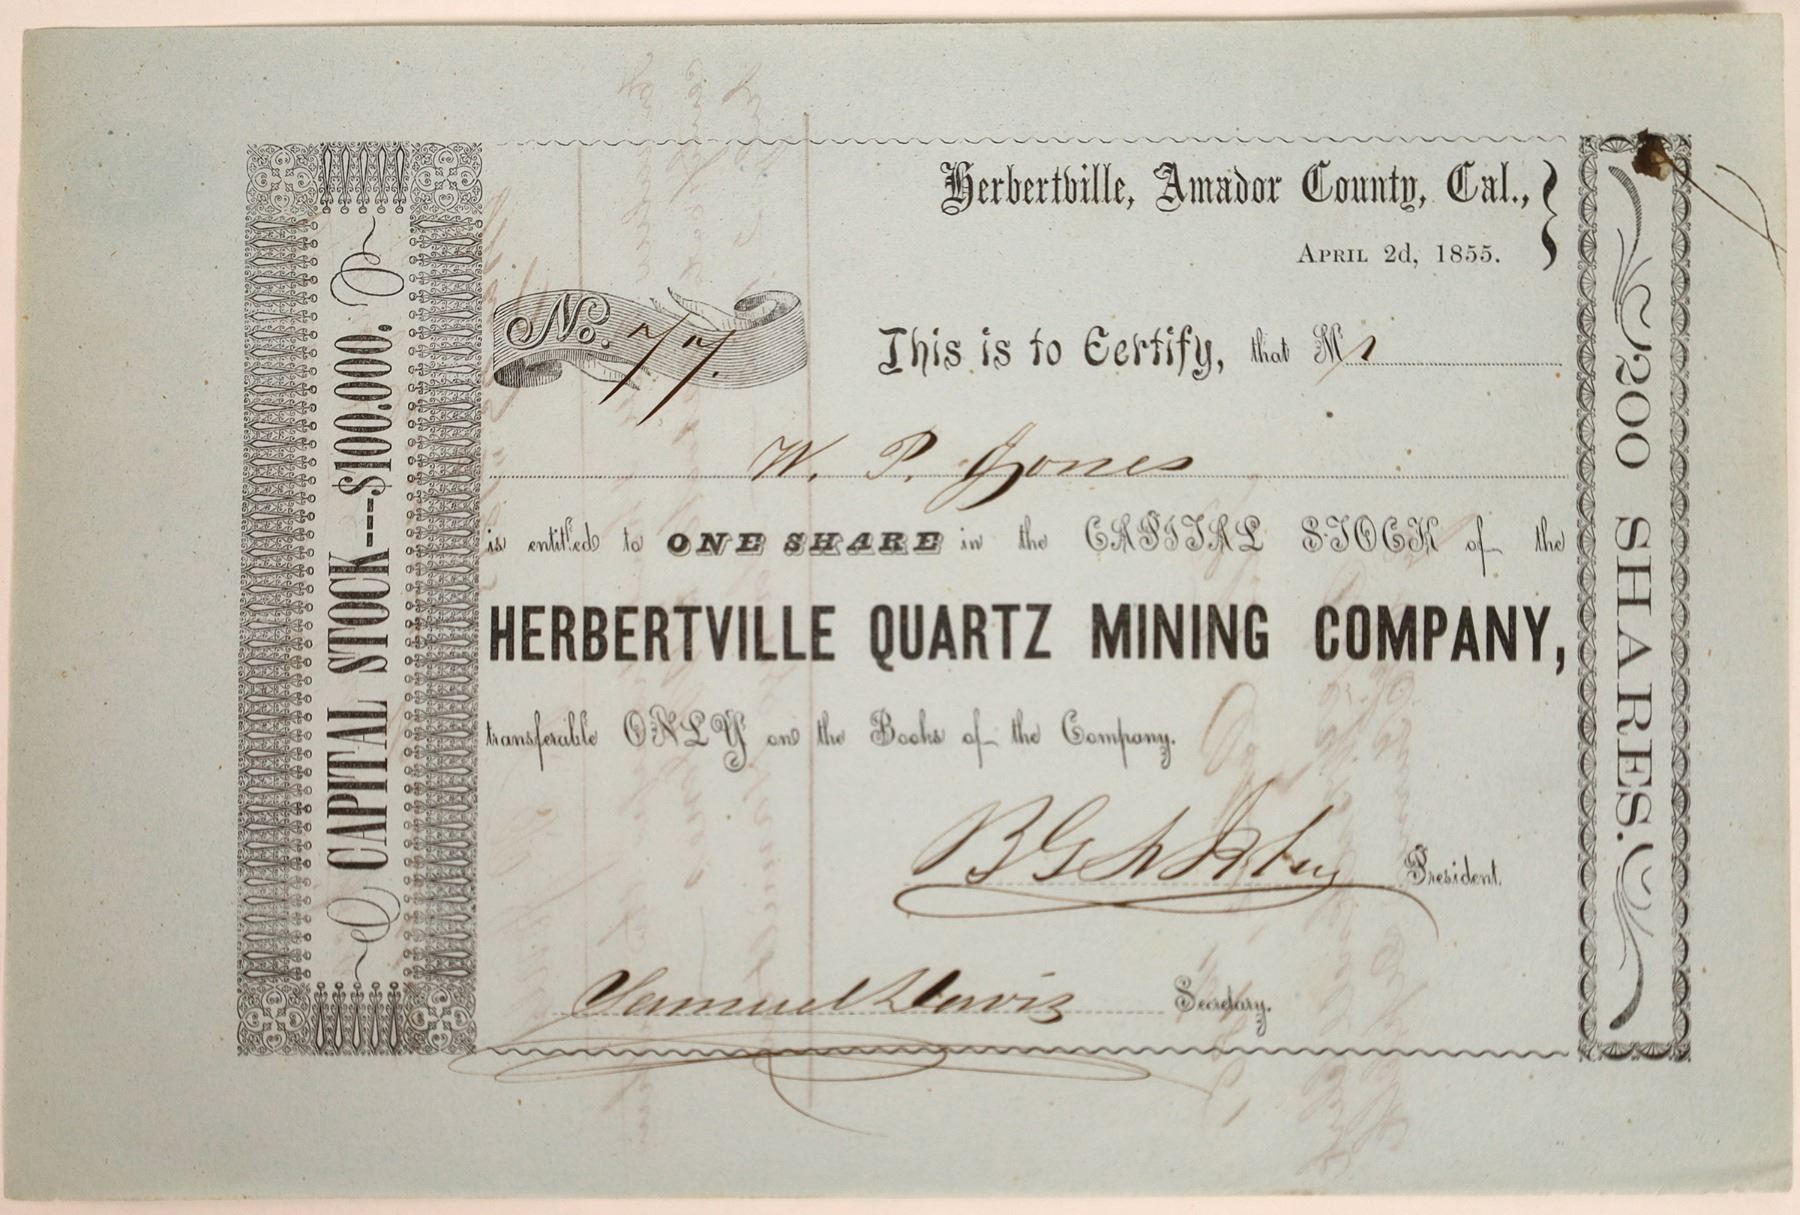 CAPITAL STOCK---$100.000.
Herbertville, Amador County, Cal.,
APRIL 2d, 1855.
No. 77.
This is to Certify, that Mr
W. P. Jones
is entitled to ONE SHARE in the CAPITAL STOCK of the
HERBERTVILLE QUARTZ MINING COMPANY,
transferable ONLY on the Books of the Company.
President.
Samuel Davis Secretary.
200 SHARES.